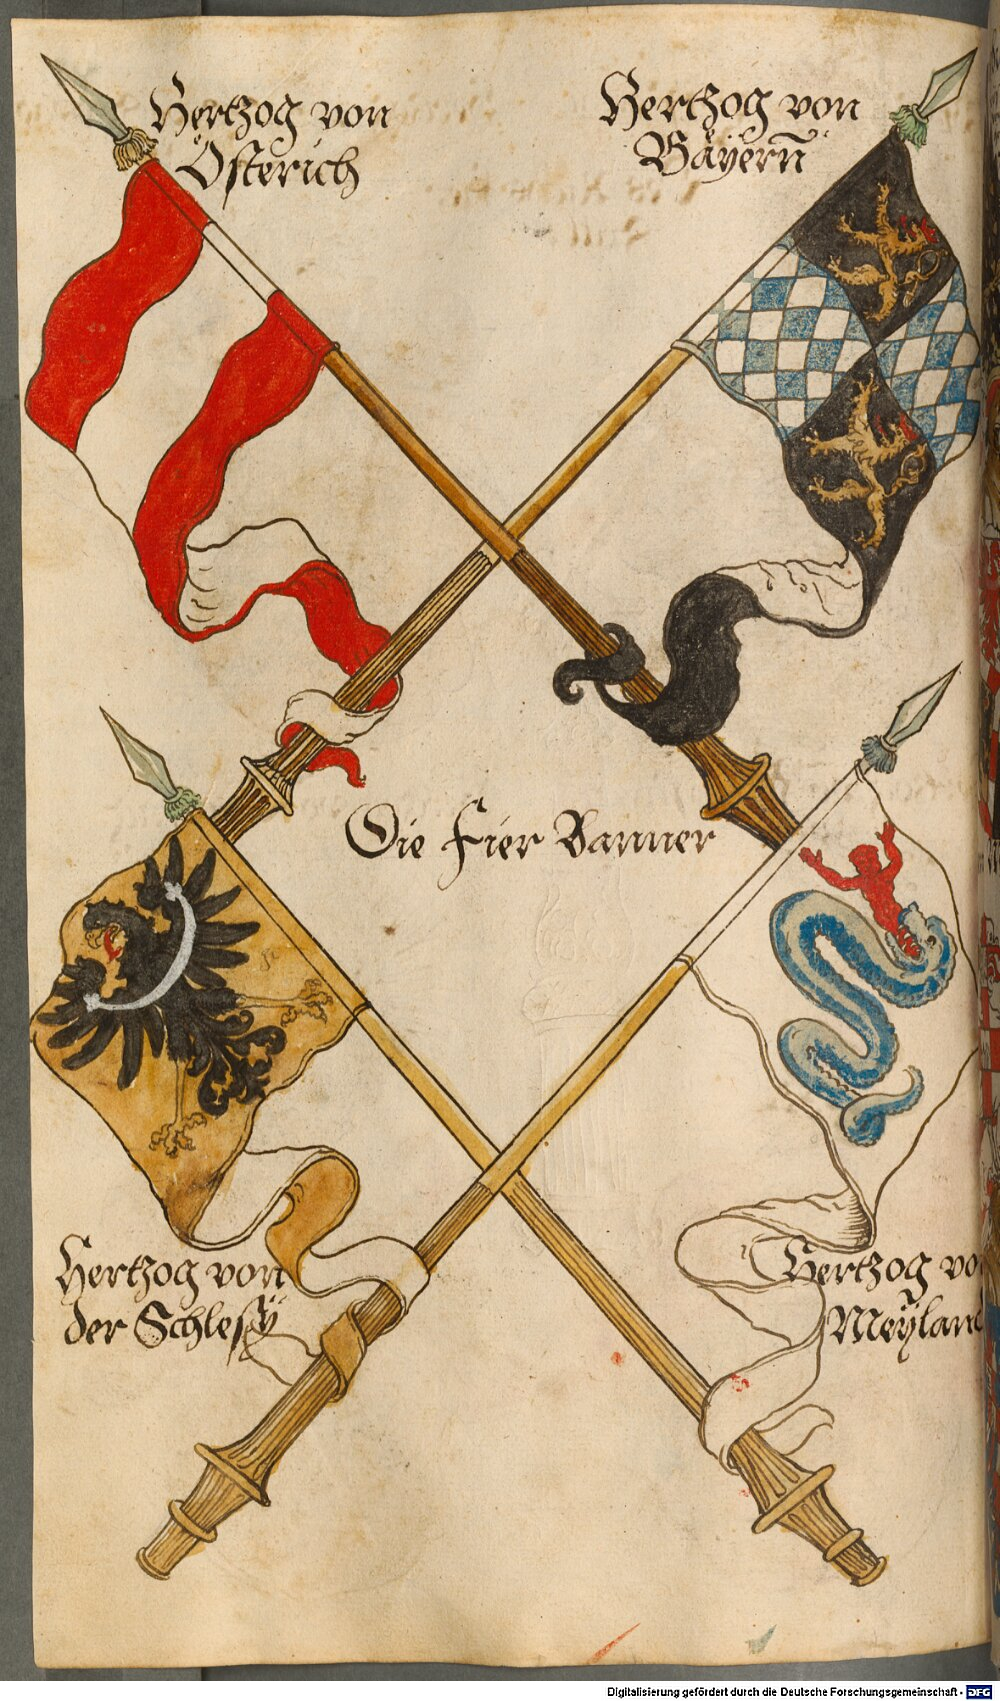 Hertzog von
Österich
Hertzog von
Bäyern̄
Die Fier Banner
Hertzog von
der Schlesÿ
Hertzog von
Meÿland
Digitalisierung gefördert durch die Deutsche Forschungsgemeinschaft - DFG